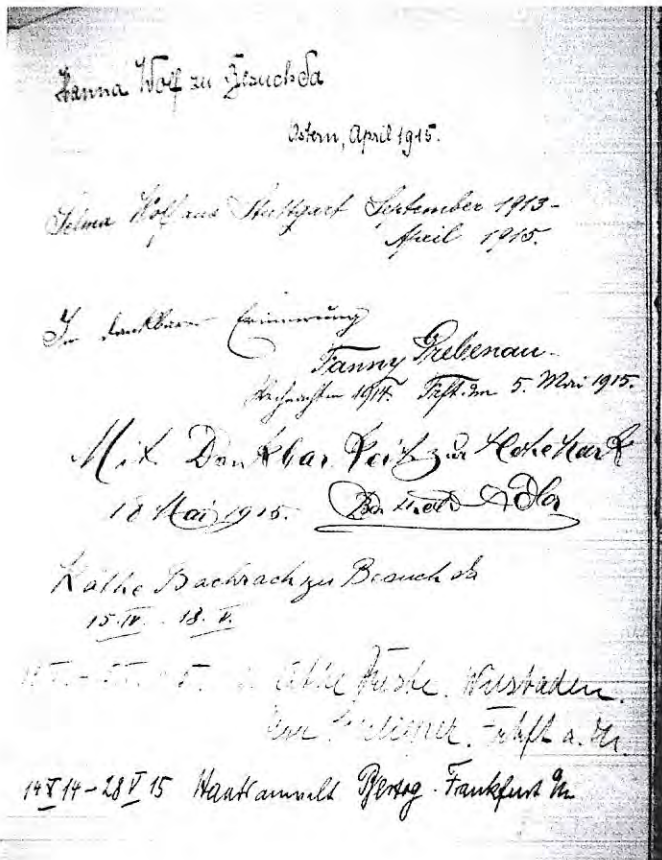 Hanna Wolf zu Besuch da
Ostern, April 1915.
Selma Wolf aus Stuttgart September 1913 -
April 1915.
In dankbarer Erinnerung
Fanny Grebenau.
Weihnachten 1914. Frkft. a/M 5. Mai 1915.
Mit Dankbarkeit zur Hohe Mark
18 Mai 1915. Adler
Käthe Bachrach zu Besuch da
15. IV. - 18. V.
Käthe Wiesbaden.
Frkft a. M.
14 X 14 - 28 V 15 Staatsanwalt Frankfurt a/M